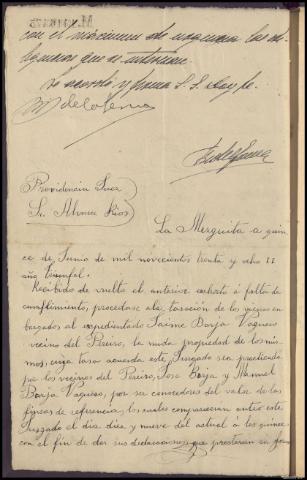 con el máximum de urgencia las di-
ligencias que se interesan.
Lo acordó y firma S. S. doy fe.
Providencia Juez
Sr. Alonso Ríos
La Mezquita a quin-
ce de Junio de mil novecientos treinta y ocho II
año Triunfal.
Recibido de vuelta el anterior exhorto a falta de
cumplimiento, procedase a la tasación de los bienes em-
bargados al expedientado Jaime Borja Vaquero
vecino del Pereiro, la nuda propiedad de los mis-
mos, cuya tasa acuerda este Juzgado sea practicada
por los vecinos del Pereiro, Jose Borja y Manuel
Borja Vaquero, por ser conocedores del valor de las
fincas de referencia, los cuales comparecerán ante este
Juzgado el dia diez y nueve del actual a las quince
con el fin de dar sus declaraciones, que prestarán en for-